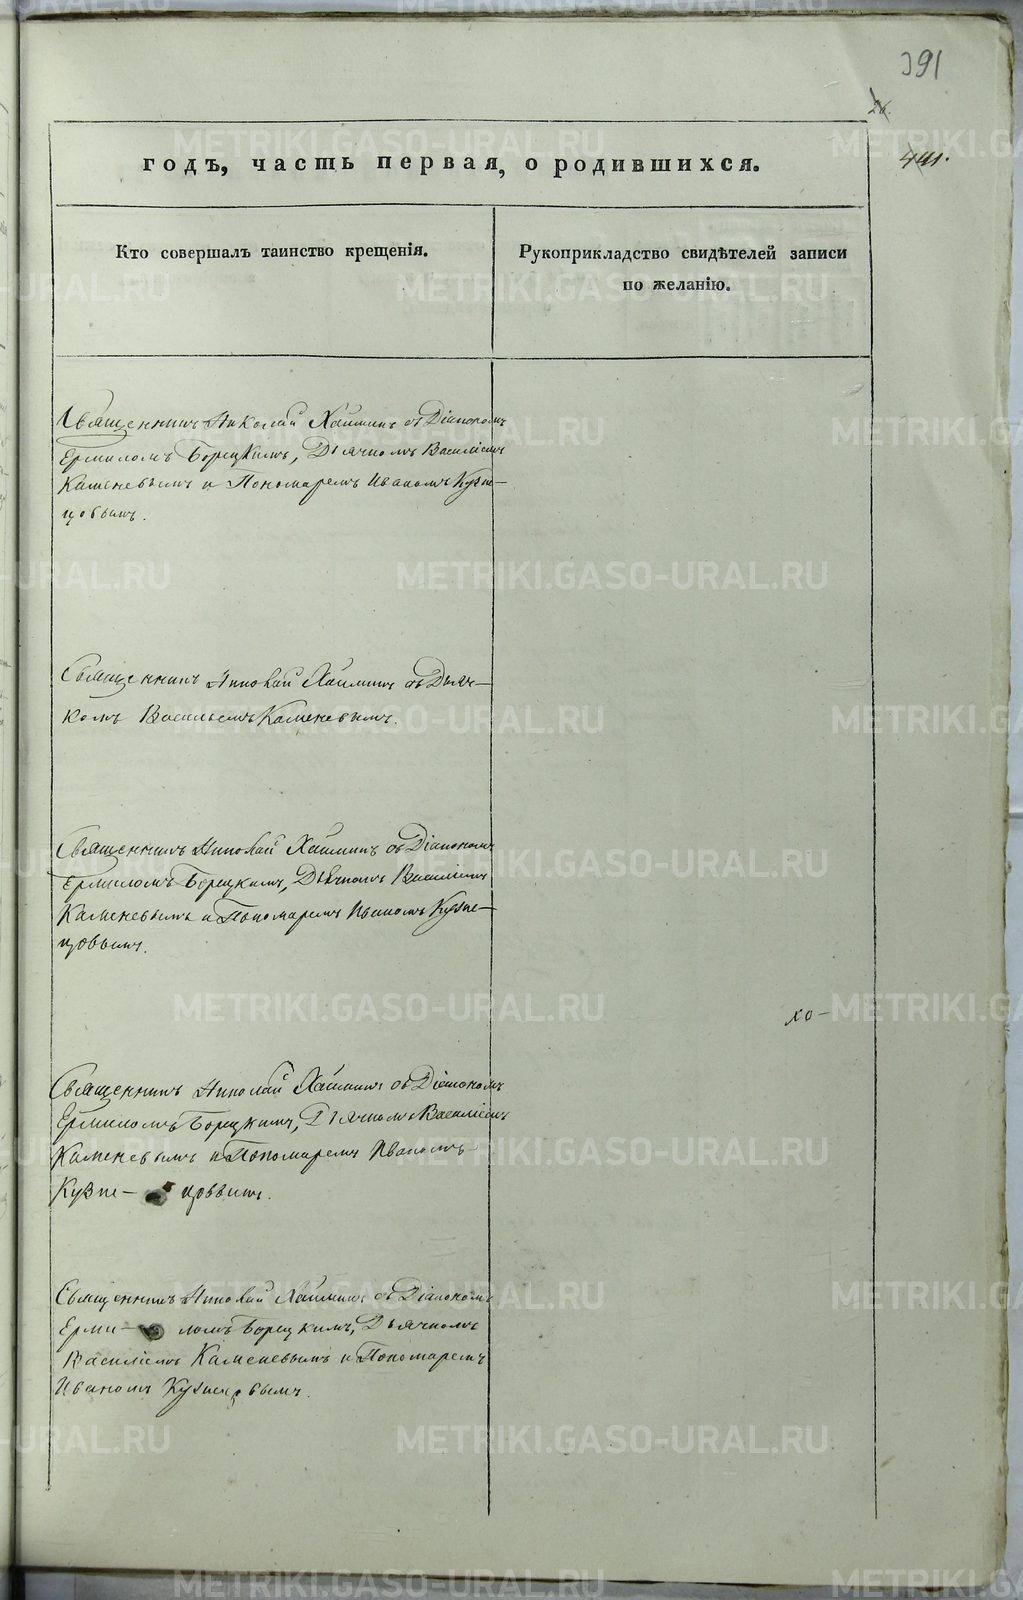 391
26.
441.
годъ, часть первая, о родившихся.
Кто совершалъ таинство крещенія.
Рукоприкладство свидѣтелей записи
по желанію.
Священникъ Николай Хаминъ съ Діакономъ
Ермиломъ Борецкимъ, Дьячкомъ Василіемъ
Каменевымъ и Пономаремъ Иваномъ Кузне-
цовымъ.
Священникъ Николай Хаминъ съ Дьяч-
комъ Васильемъ Каменевымъ.
Священникъ Николай Хаминъ съ Діакономъ
Ермиломъ Борецкимъ, Дьячкомъ Василіемъ
Каменевымъ и Пономаремъ Иваномъ Кузне-
цовымъ.
Священникъ Николай Хаминъ съ Діакономъ
Ермиломъ Борецкимъ, Дьячкомъ Василіемъ
Каменевымъ и Пономаремъ Иваномъ
Кузне- цовымъ.
Священникъ Николай Хаминъ съ Діакономъ
Ерми- ломъ Борецкимъ, Дьячкомъ
Василіемъ Каменевымъ и Пономаремъ
Иваномъ Кузнецовымъ.
METRIKI.GASO-URAL.RU